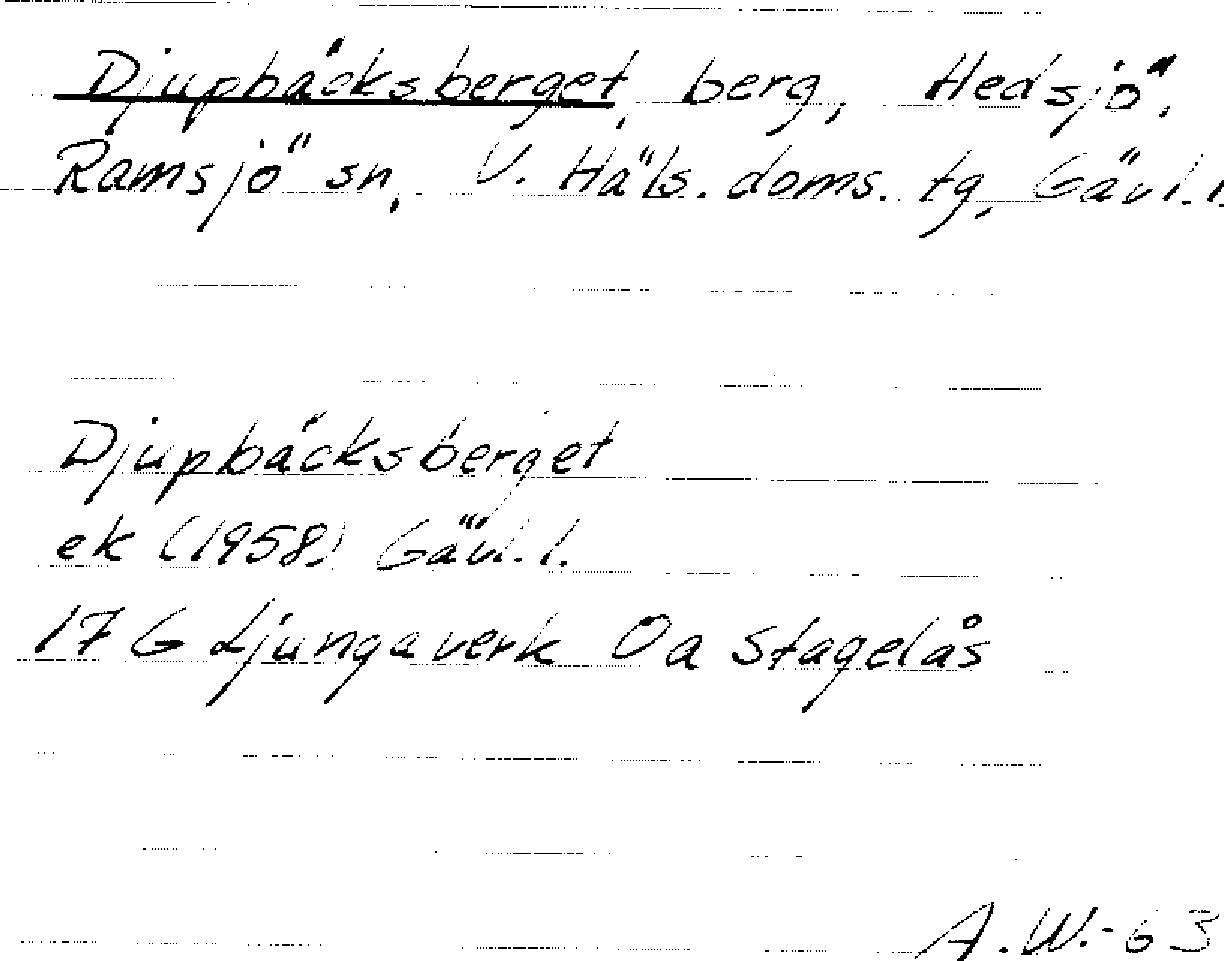 Djupbäcksberget, berg, Hedsjö,
Ramsjö sn, V. Häls. doms. tg, Gävl.l.
Djupbäcksberget
ek (1958) Gävl.l.
17 G Ljungaverk Oa Stagelås
A.W.-63